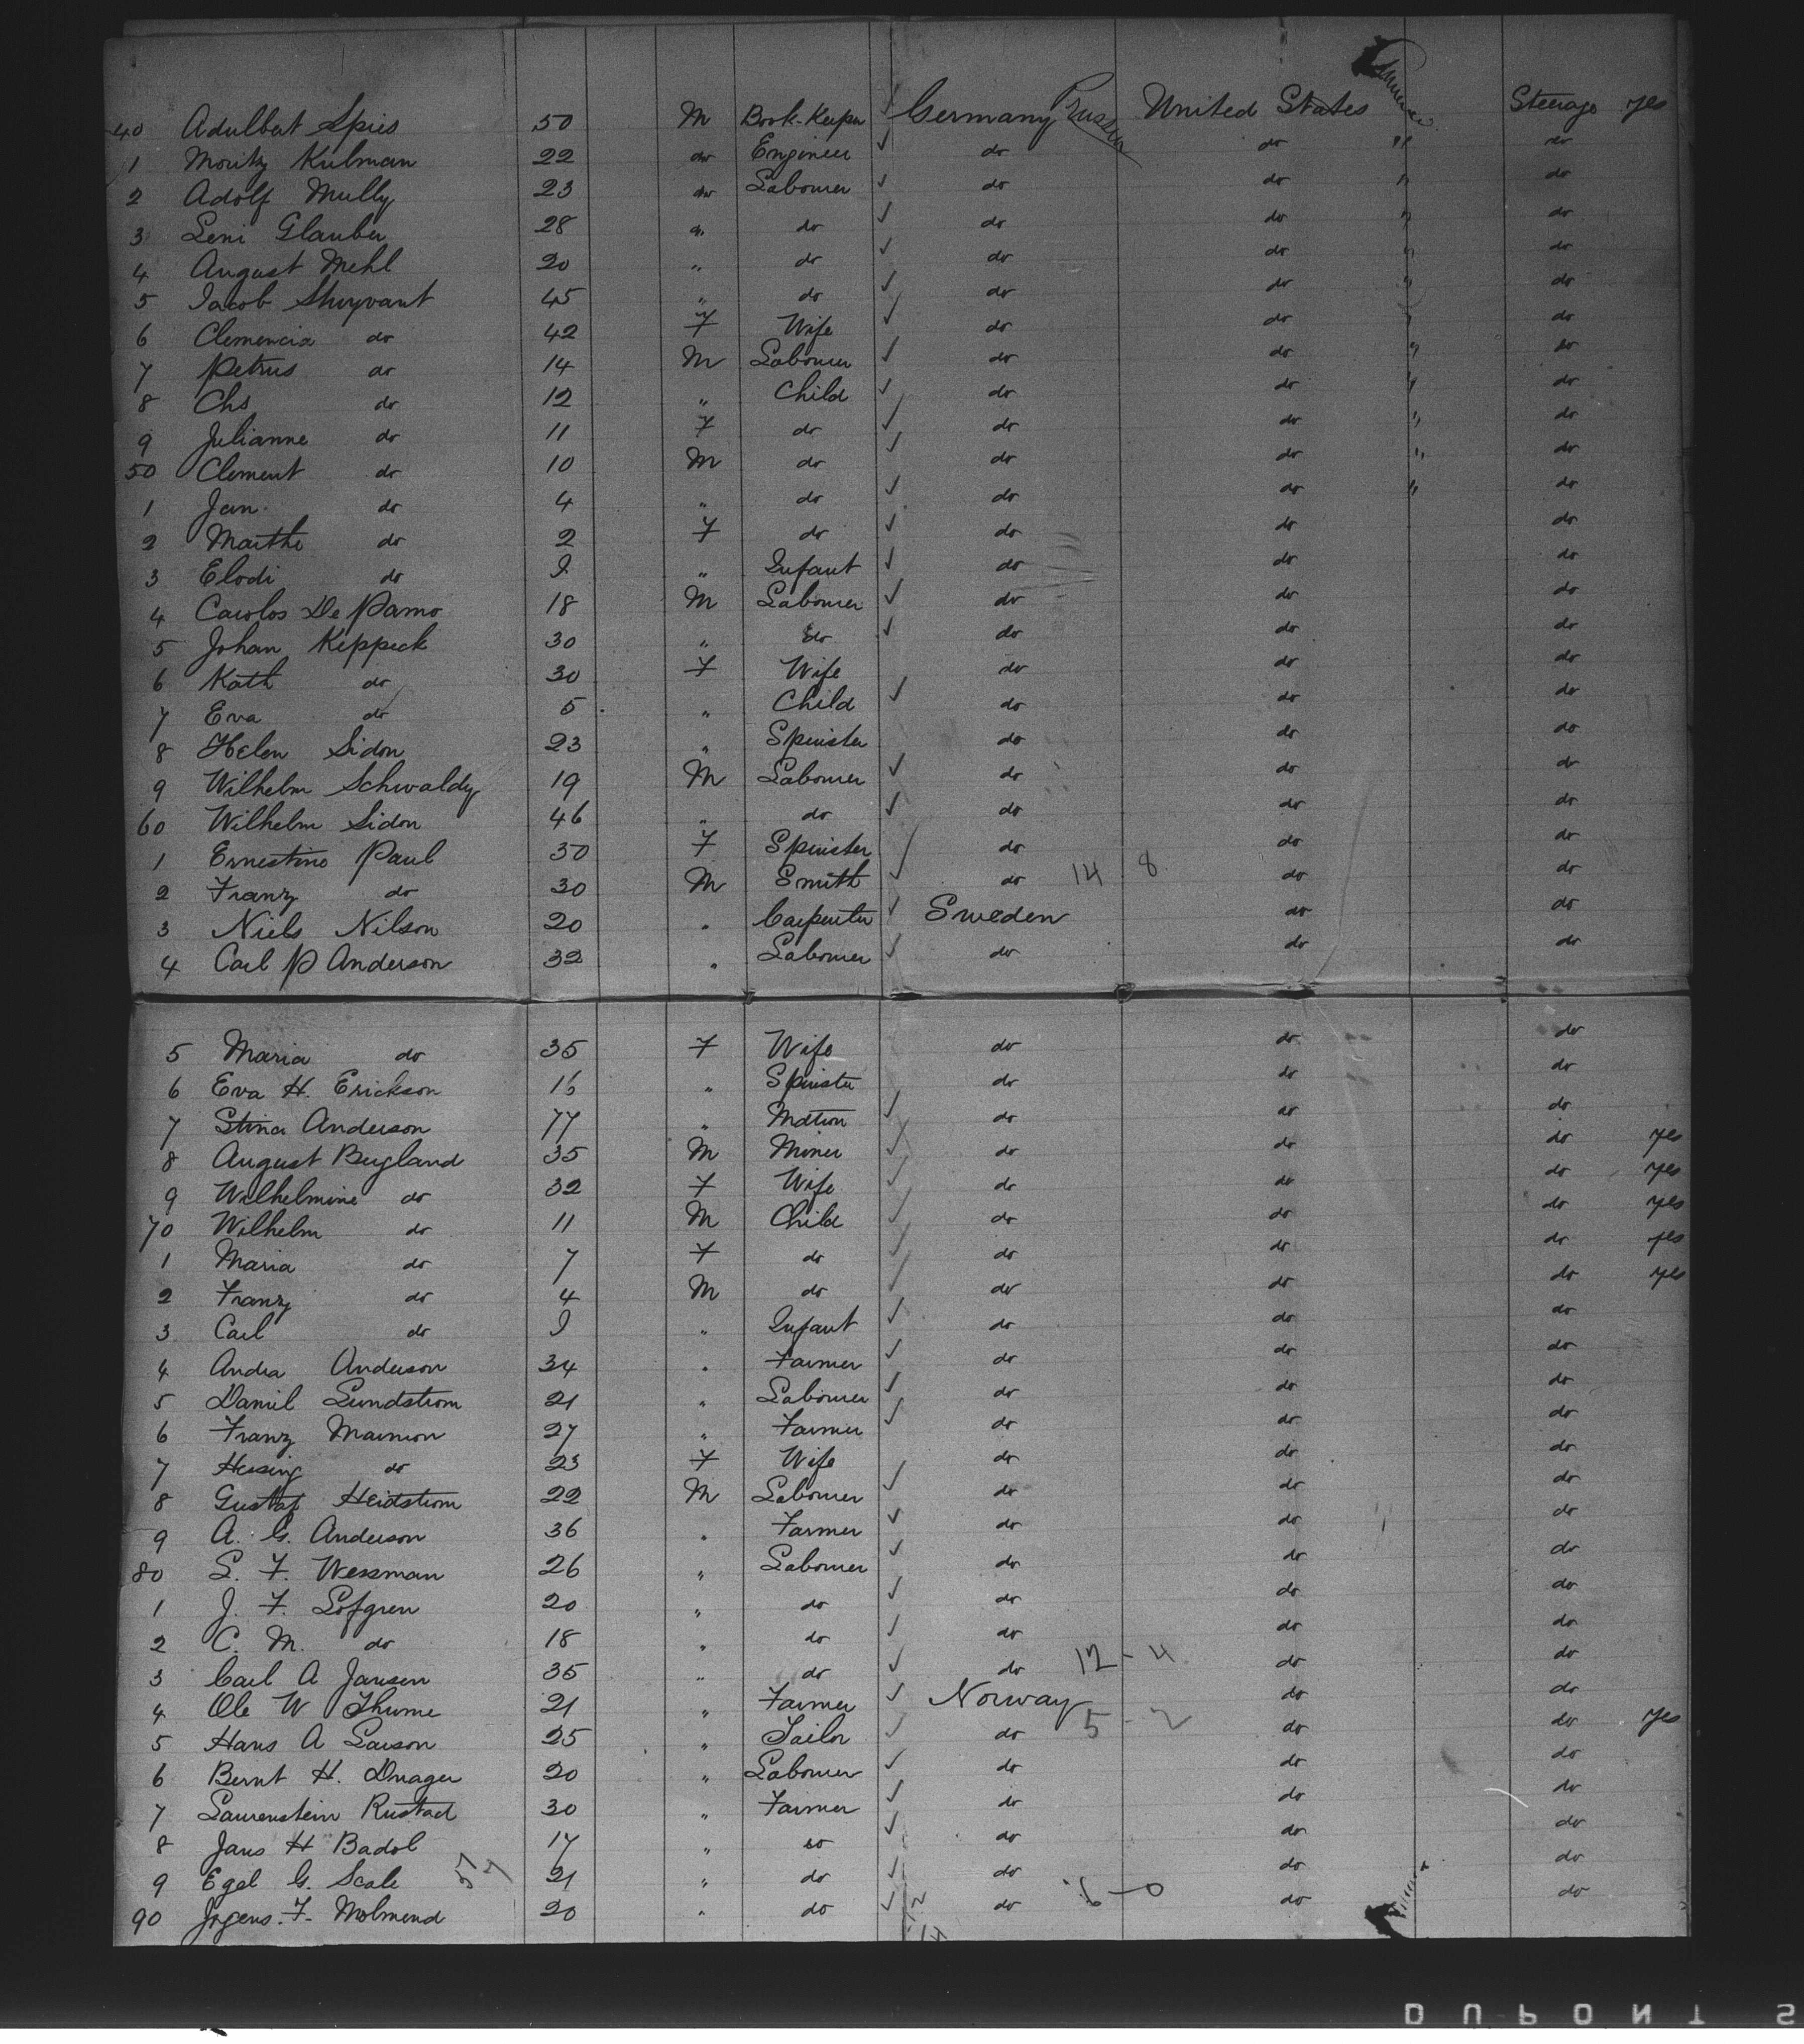 40 Adulbert Spies 50 M Book-Keeper ✓ Germany Prussia United States Steerage yes
1 Moritz Kulman 22 do Engineer ✓ do do " do
2 Adolf Mully 23 do Labourer ✓ do do " do
3 Leni Glauber 28 " do ✓ do do " do
4 August Mehl 20 " do ✓ do do " do
5 Jacob Shuyvant 45 " do ✓ do do " do
6 Clemencia do 42 F Wife ✓ do do " do
7 Petrus do 14 M Labourer ✓ do do " do
8 Chs do 12 " Child ✓ do do " do
9 Julianne do 11 F do ✓ do do " do
50 Clement do 10 M do ✓ do do " do
1 Jan do 4 " do ✓ do do " do
2 Marthe do 2 F do ✓ do do do
3 Elodi do I " Infant ✓ do do do
4 Carolos De Pamo 18 M Labourer ✓ do do do
5 Johan Keppeck 30 " do ✓ do do do
6 Kath do 30 F Wife do do do
7 Eva do 5 " Child ✓ do do do
8 Helen Sidon 23 " Spinster do do do
9 Wilhelm Schwaldy 19 M Labourer ✓ do do do
60 Wilhelm Sidon 46 " do ✓ do do do
1 Ernestine Paul 30 F Spinster ✓ do do do
2 Franz do 30 M Smith ✓ do 14 8 do do
3 Niels Nilson 20 " Carpenter ✓ Sweden do do
4 Carl P Anderson 32 " Labourer ✓ do do do
5 Maria do 35 F Wife do do do
6 Eva H. Erickson 16 " Spinster do do do
7 Stina Anderson 77 " Matron ✓ do do do
8 August Bugland 35 M Miner ✓ do do do yes
9 Wilhelmine do 32 F Wife ✓ do do do yes
70 Wilhelm do 11 M Child ✓ do do do yes
1 Maria do 7 F do ✓ do do do yes
2 Franz do 4 M do ✓ do do do yes
3 Carl do I " Infant ✓ do do do
4 Andra Anderson 34 " Farmer ✓ do do do
5 Daniel Lundstrom 21 " Labourer ✓ do do do
6 Franz Marnion 27 " Farmer ✓ do do do
7 Hessing do 23 F Wife do do do
8 Gustaf Heidstrom 22 M Labourer ✓ do do do
9 A. G. Anderson 36 " Farmer ✓ do do do
80 S. F. Wessman 26 " Labourer ✓ do do do
1 J. F. Lofgren 20 " do ✓ do do do
2 C. M. do 18 " do ✓ do do do
3 Carl A Jansen 35 " do ✓ do 12-4 do do
4 Ole W Thume 21 " Farmer ✓ Norway do do
5 Hans A Larson 25 " Tailor ✓ do 5-2 do do yes
6 Bernt H. Dnager 20 " Labourer ✓ do do do
7 Laurenstein Rustad 30 " Farmer ✓ do do do
8 Jans H Badol 17 " do ✓ do do do
9 Egel G. Scale 57 7 21 " do ✓ do do do
90 Jrgens. F. Molmend 20 " do ✓ do 6-0 do do
DUPONT S